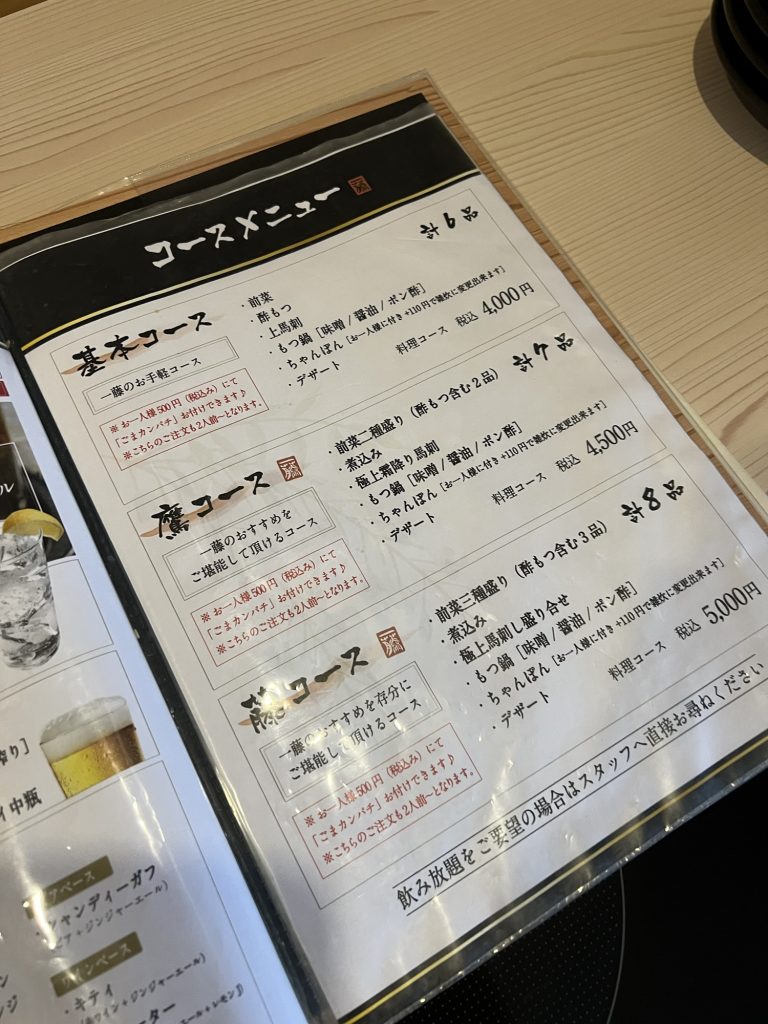 コースメニュー
基本コース
計6品
一藤のお手軽コース
※お一人様500円(税込み)にて
「ごまカンパチ」お付けできます♪
※こちらのご注文も2人前〜となります。
・前菜
・酢もつ
・上馬刺
・もつ鍋［味噌/醤油/ポン酢］
・ちゃんぽん［お一人様に付き+110円で雑炊に変更出来ます］
・デザート
料理コース 税込 4,000円
鷹コース
計7品
一藤のおすすめを
ご堪能して頂けるコース
※お一人様500円(税込み)にて
「ごまカンパチ」お付けできます♪
※こちらのご注文も2人前〜となります。
・前菜二種盛り（酢もつ含む2品）
・煮込み
・極上霜降り馬刺
・もつ鍋［味噌/醤油/ポン酢］
・ちゃんぽん［お一人様に付き+110円で雑炊に変更出来ます］
・デザート
料理コース 税込 4,500円
藤コース
計8品
一藤のおすすめを存分に
ご堪能して頂けるコース
※お一人様500円(税込み)にて
「ごまカンパチ」お付けできます♪
※こちらのご注文も2人前〜となります。
・前菜三種盛り（酢もつ含む3品）
・煮込み
・極上馬刺し盛り合せ
・もつ鍋［味噌/醤油/ポン酢］
・ちゃんぽん［お一人様に付き+110円で雑炊に変更出来ます］
・デザート
料理コース 税込 5,000円
飲み放題をご要望の場合はスタッフへ直接お尋ねください
ル
搾り］
イ中瓶
ベース
シャンディーガフ
ビア+ジンジャーエール）
ワインベース
・キティ
赤ワイン+ジンジャーエール）
ーター
ール+レモン］